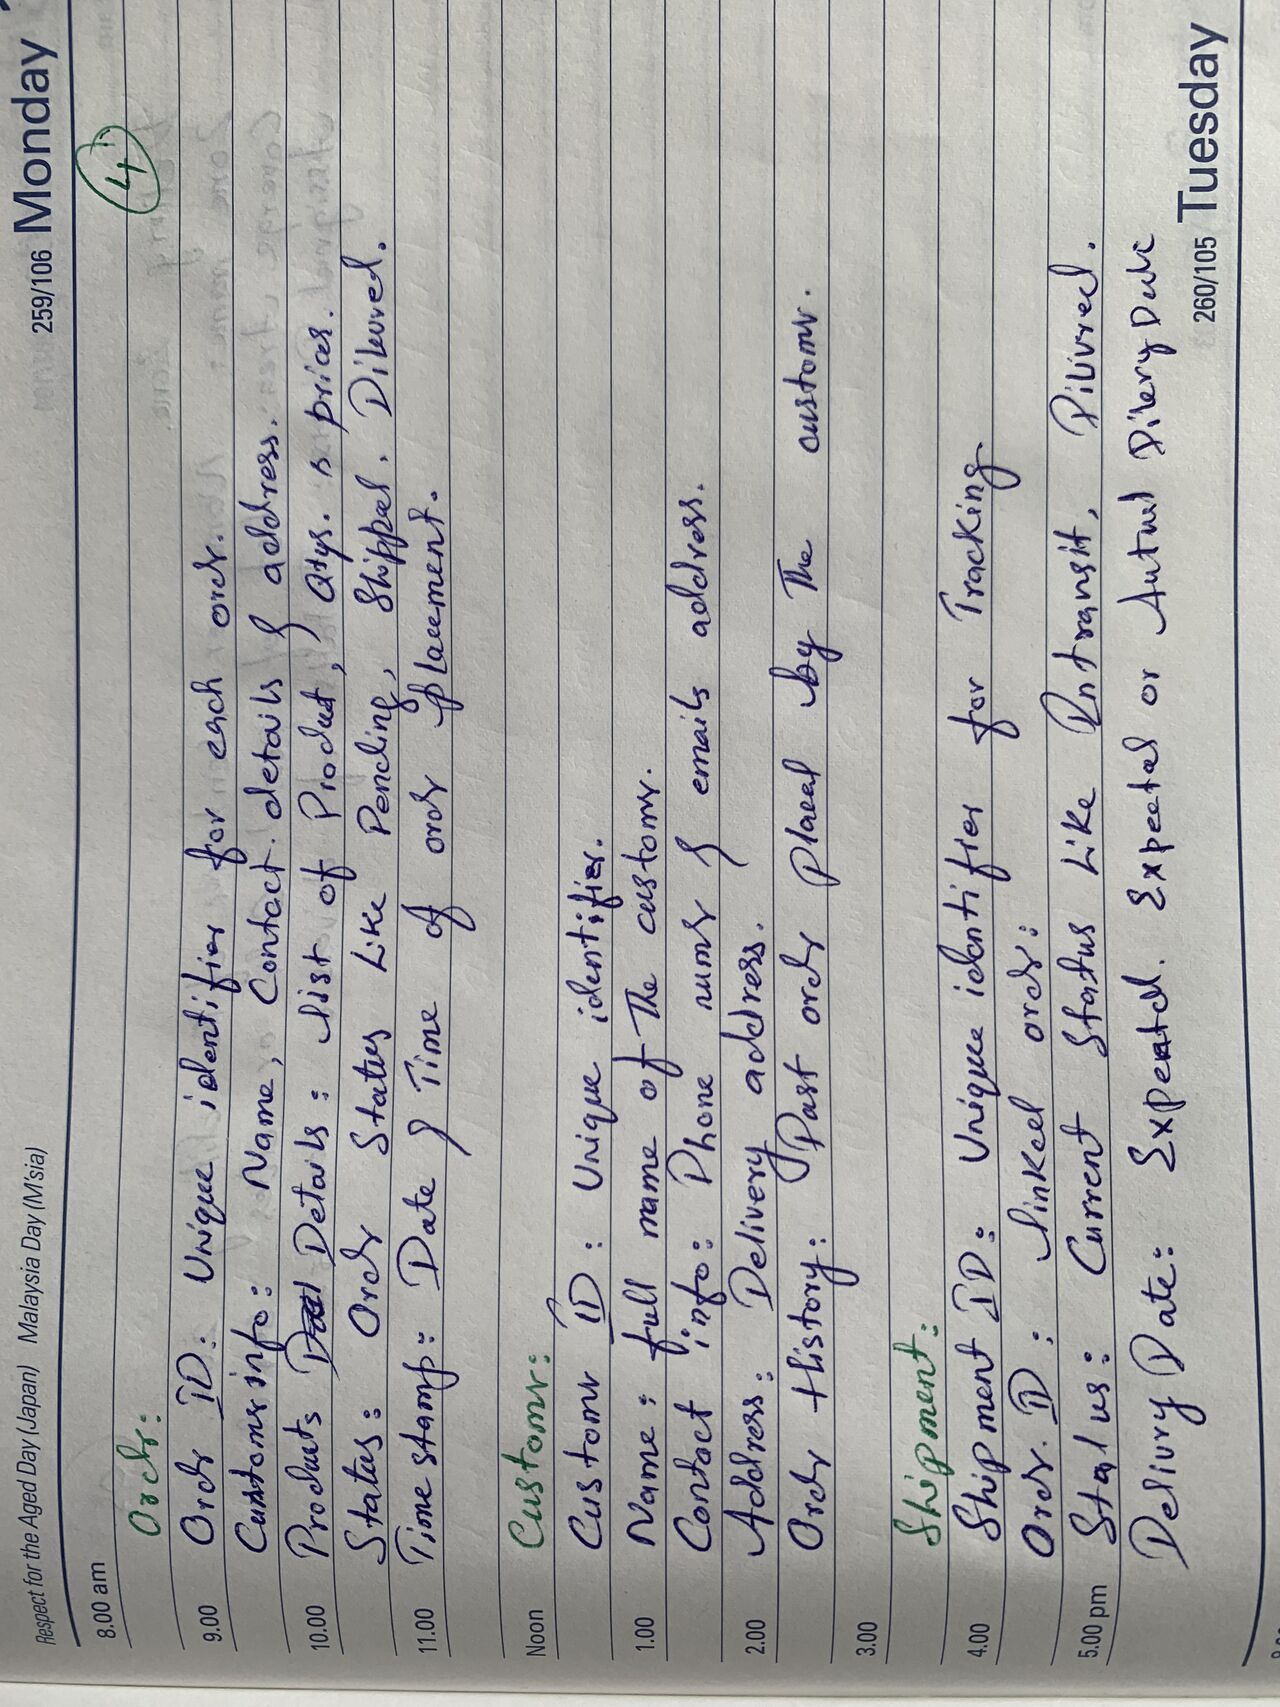 Respect for the Aged Day (Japan) Malaysia Day (M'sia) 259/106 Monday
8.00 am
4
Order:
9.00 Order ID: Unique identifier for each order.
Customer info: Name, Contact. details & address.
10.00 Products Details: List of Product, & Qtys. & prices.
Status: Order States Like Pending, Shipped. Dilevred.
11.00 Time stamp: Date & Time of order placement.
Noon Customer:
Customer ID: Unique identifier.
1.00 Name: full name of The customer.
Contact info: Phone numr & emails address.
2.00 Address: Delivery address.
Order History: Past order placed by The customer.
3.00
Shipment:
4.00 Shipment ID: Unique identifier for Tracking
Order. ID: Linked order:
5.00 pm Status: Current Status Like Intransit, Dilivred.
Delivry Date: Expected. Expected or Actual Dilery Date
260/105 Tuesday